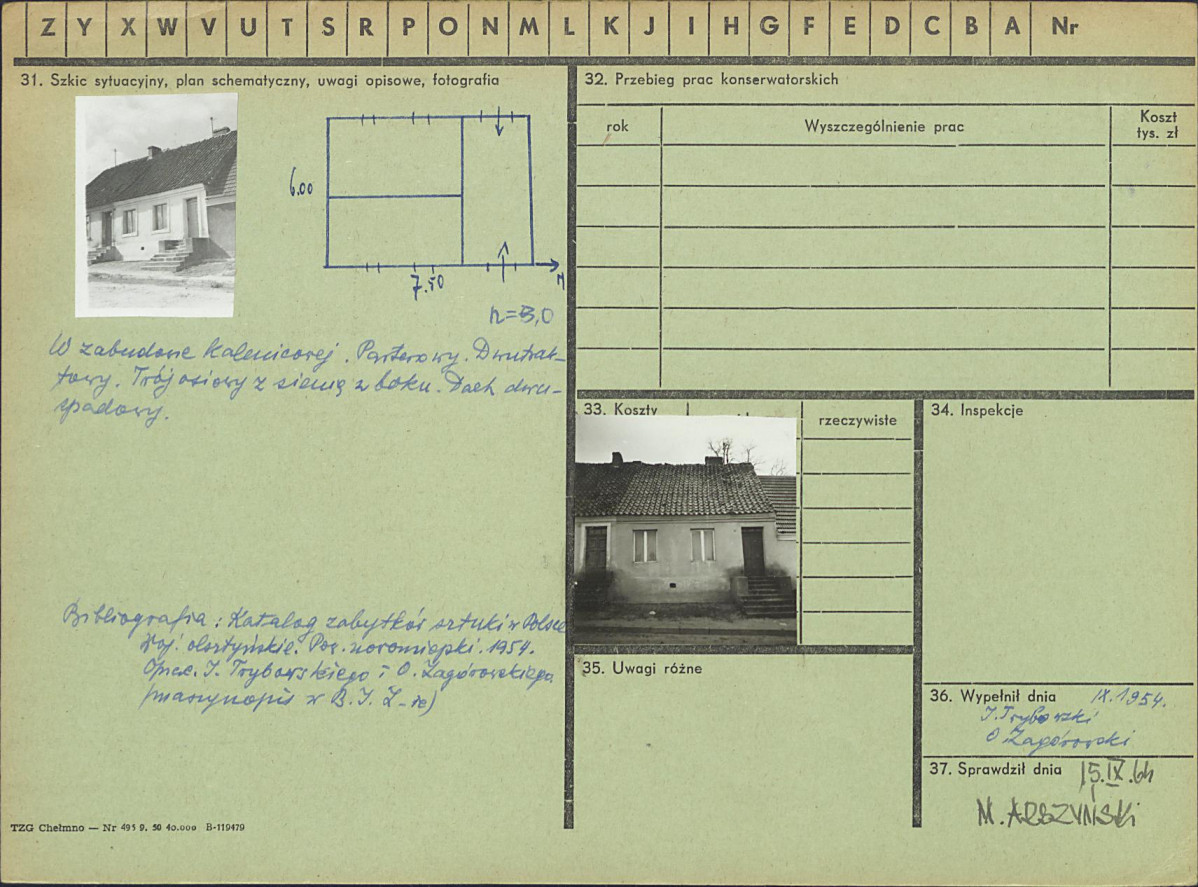 Z Y X W V U T S R P O N M L K J I H G F E D C B A Nr
31. Szkic sytuacyjny, plan schematyczny, uwagi opisowe, fotografia
6.00
7.50
N
W zabudowie kalenicowej. Parterowy. Dwutrak-
towy. Trójosiowy z sienią z boku. Dach dwu-
spadowy.
Bibliografia: Katalog zabytków sztuki w Polsce
Woj. olsztyńskie. Pow. nowomiejski. 1954.
Oprac. J. Trybowskiego i O. Zagórowskiego
(maszynopis w B.I.Z-ie)
TZG Chełmno — Nr 495 9. 50 40.000 B-119479
32. Przebieg prac konserwatorskich
rok
Wyszczególnienie prac
Koszt
tys. zł
33. Koszty
rzeczywiste
34. Inspekcje
35. Uwagi różne
36. Wypełnił dnia IX.1954.
J. Trybowski
O Zagórowski
37. Sprawdził dnia 15.IX.64
M. ARSZYŃSKI